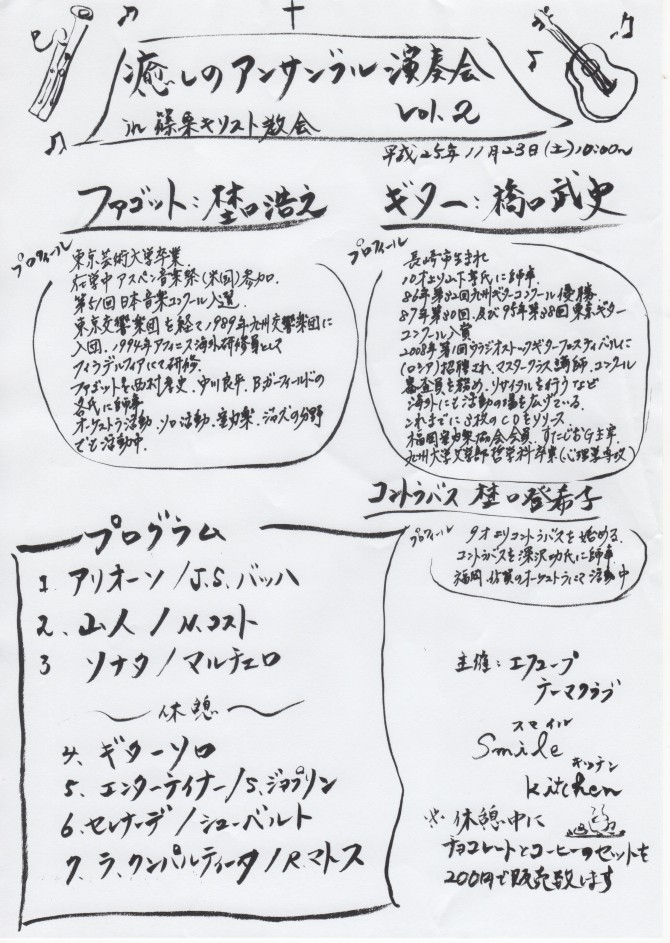 癒しのアンサンブル演奏会
vol.2
in 篠栗キリスト教会
平成25年11月23日(土)10:00〜
ファゴット:埜口浩之
プロフィール
東京芸術大学卒業.
在学中アスペン音楽祭(米国)参加.
第51回日本音楽コンクール入選.
東京交響楽団を経て1989年九州交響楽団に
入団. 1994年アフィニス海外研修員として
フィラデルフィアにて研修.
ファゴットを西村孝史.中川良平.B.ガーフィールドの
各氏に師事
オーケストラ活動.ソロ活動.室内楽.ジャズの分野
でも活動中.
ギター:橋口武史
プロフィール
長崎市生まれ
10才より山下亨氏に師事.
86年第32回九州ギターコンクール優勝
87年第30回.及び95年第38回東京ギター
コンクール入賞
2008年第1回ウラジオストックギターフェスティバルに
(ロシア)招聘され.マスタークラス講師.コンクール
審査員を務め.リサイタルを行うなど
海外にも活動の場を広げている.
これまでに3枚のCDをリリース
福岡室内楽協会会員.すたじおG主宰.
九州大学文学部哲学科卒業(心理学専攻)
コントラバス 埜口登希子
プロフィール
9才よりコントラバスを始める.
コントラバスを深沢功氏に師事
福岡.佐賀のオーケストラにて活動中
プログラム
1. アリオーソ/J.S.バッハ
2、山人/N.コスト
3 ソナタ/マルチェロ
〜休憩〜
4、ギターソロ
5、エンターテイナー/S.ジョプリン
6、セレナーデ/シューベルト
7、ラ.クンパルティータ/R.マトス
主催:エフコープ
テーマクラブ
スマイル
Smile
キッチン
kitchen
※休憩中に
チョコレートとコーヒーのセットを
200円で販売致します